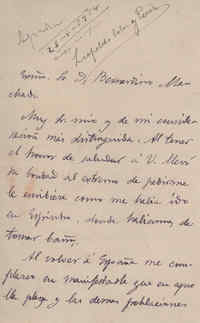 Exmo. Sr. D. Bernardino Ma-
chado.
Muy Sr. mio y de mi conside-
ración más distinguida. Al tener
el honor de saludar á V. llevó
su bondad al extremo de pedirme
le escribiera como me había ido
en Espinho, donde habíamos de
tomar baños.
Al volver á España me com-
plazco en manifestarle que en aque-
lla playa y las demás poblaciones